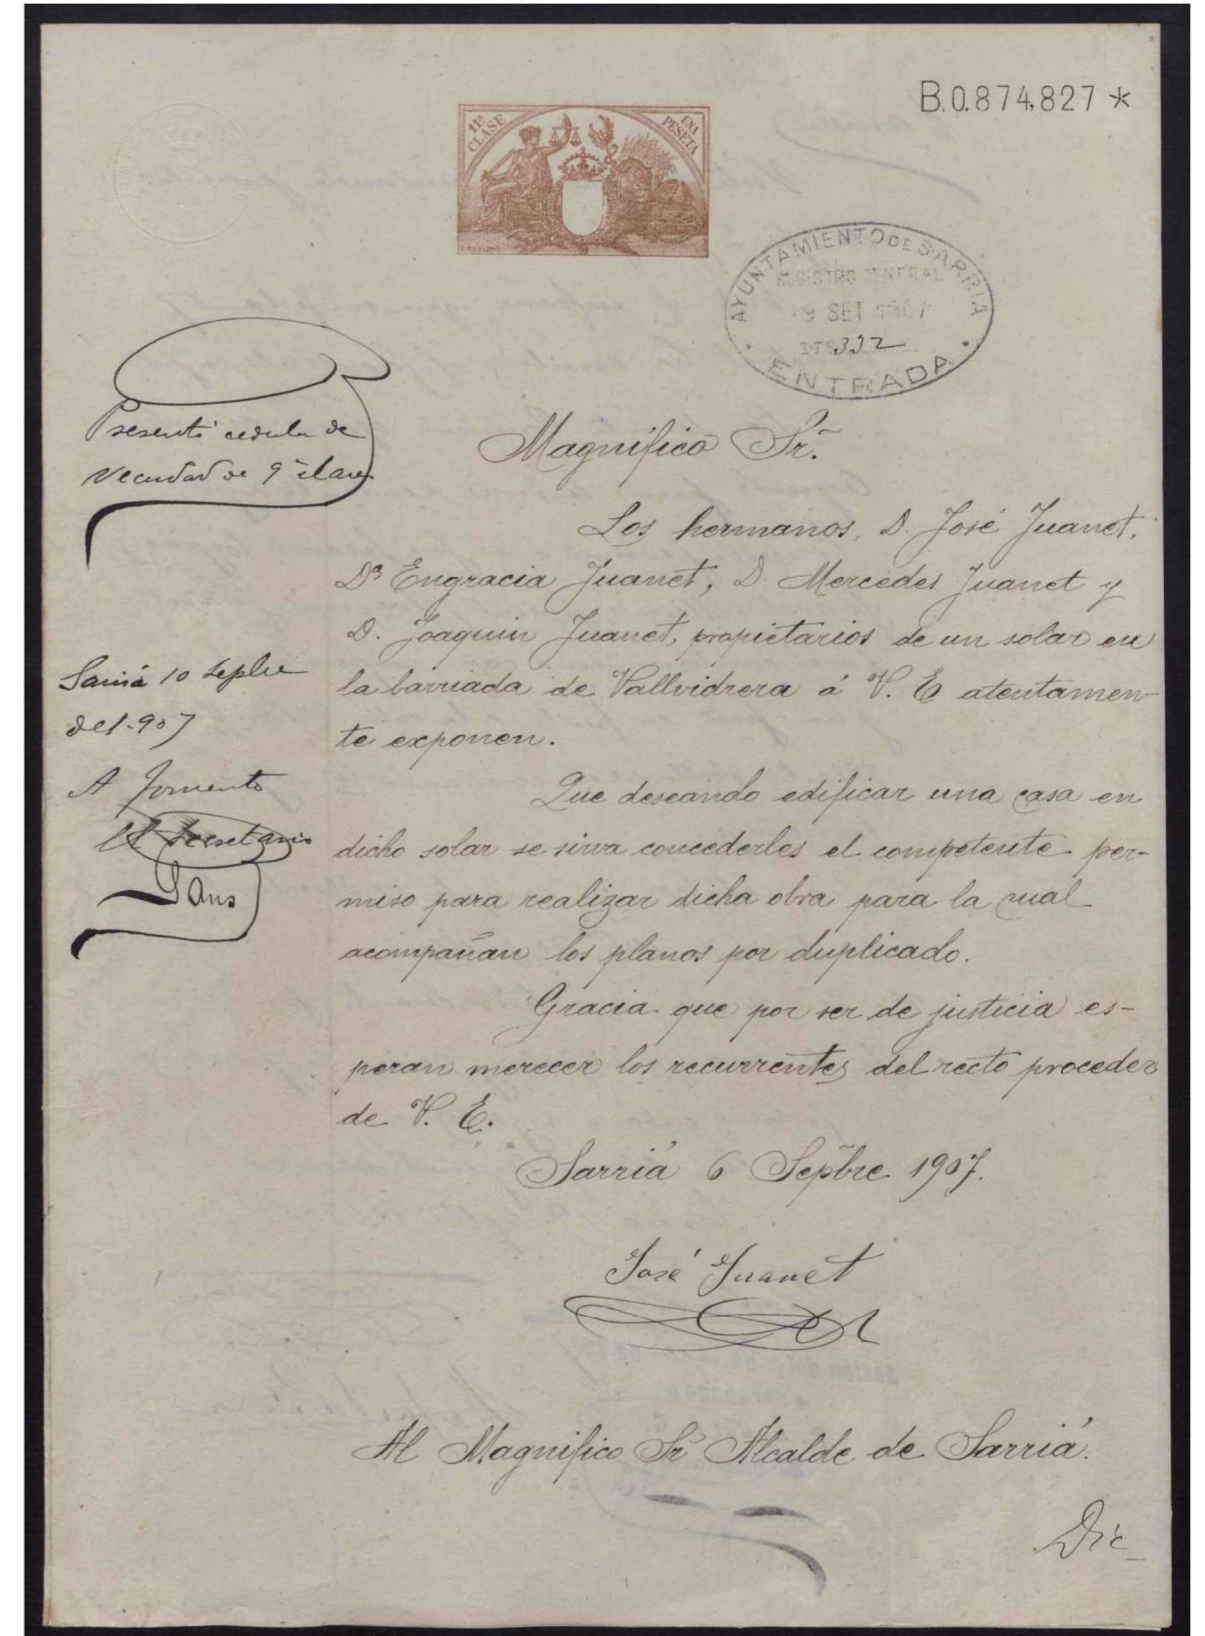 B.0.874,827 *
11ª CLASE
UNA PESETA
AYUNTAMIENTO DE SARRIA
REGISTRO GENERAL
9 SET 1907
332
ENTRADA
Presentó cedula de
vecindad de 9ª clase
Magnifico Sr.
Los hermanos, D. José Juanet,
Dª Engracia Juanet, D. Mercedes Juanet y
D. Joaquin Juanet, propietarios de un solar en
la barriada de Vallvidrera á V. E atentamen-
te exponen.
Que deseando edificar una casa en
dicho solar se sirva concederles el competente per-
miso para realizar dicha obra para la cual
acompañan los planos por duplicado.
Gracia que por ser de justicia es-
peran merecer los recurrentes del recto proceder
de V. E.
Sarriá 6 Sepbre 1907.
José Juanet
Al Magnifico Sr Alcalde de Sarriá.
Sarriá 10 Sepbre
de 1.907
A Fomento
El Secretario
Sans
Dic